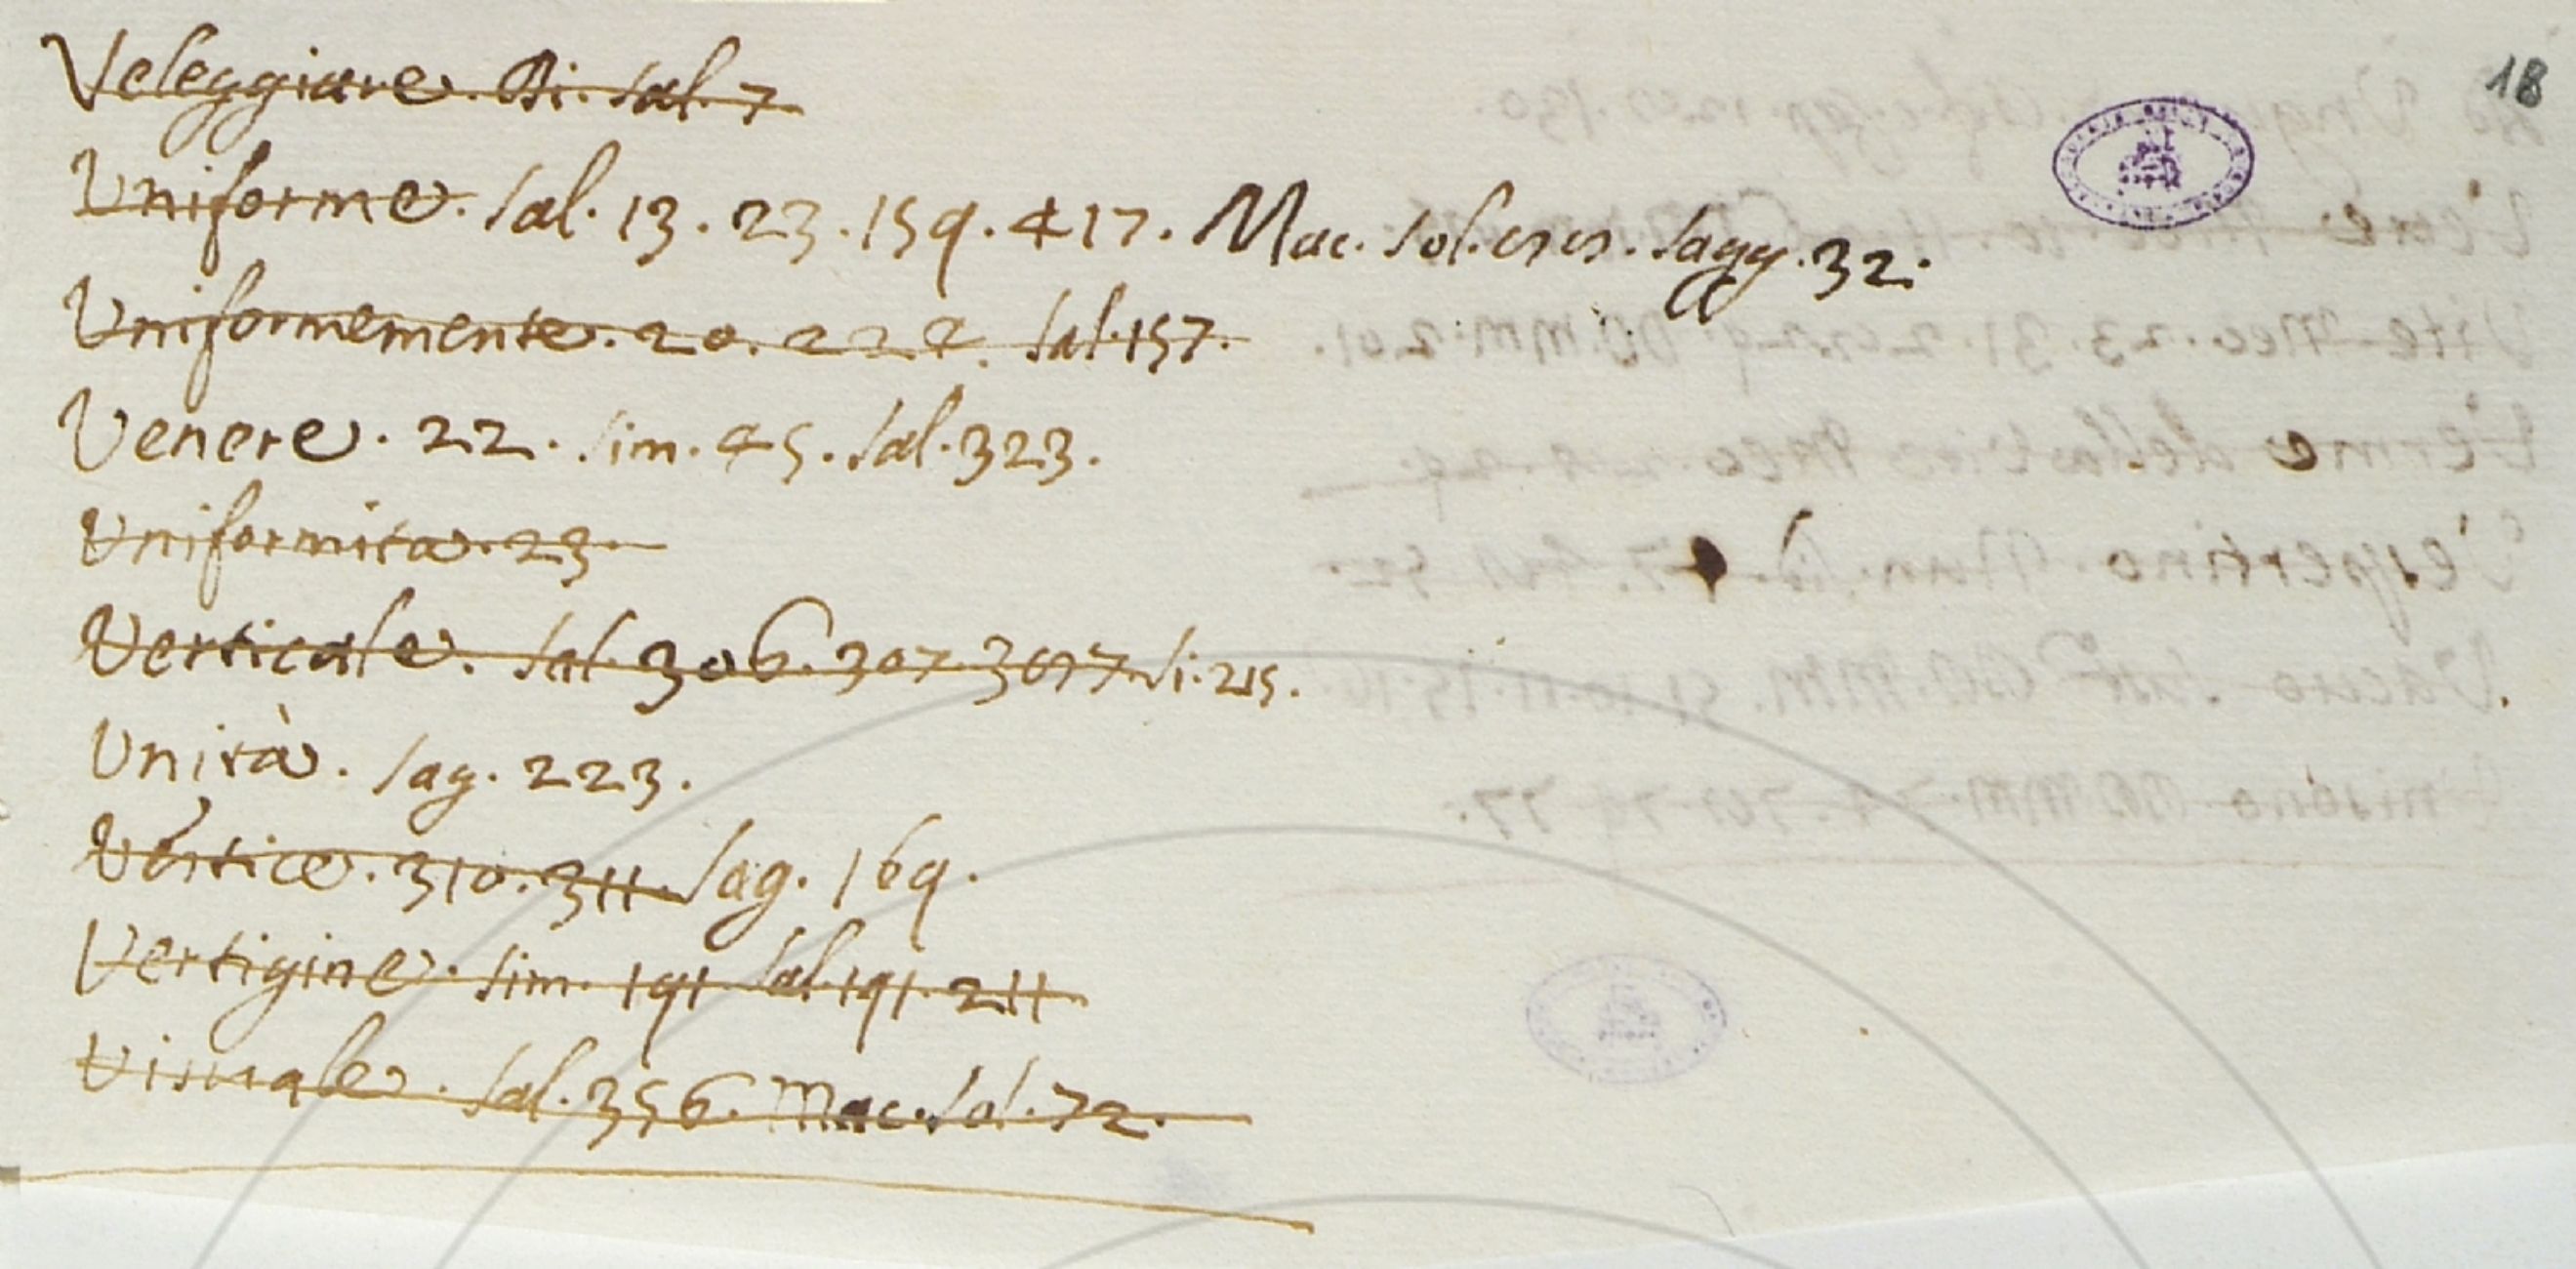 18
Veleggiare. Bi. Sal. 7
Uniforme. Sal. 13. 23. 159. 417. Mac. Sol. Sagg. 32.
Uniformemente. 20. Sal. 157.
Venere. 22. Sim. 45. Sal. 323.
Uniformita. 23
Verticale. Sal. 306. 307. Si. 215.
Unità. Sag. 223.
Vortice. 310. 311. Sag. 169.
Vertigine. Sim. 191. Sal. 191. 211
Visuale. Sal. 356. Mac. Sol. 72.